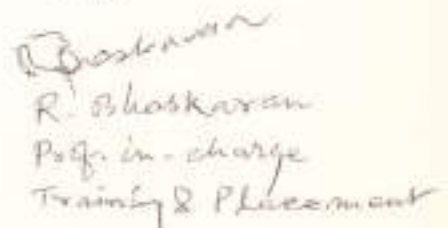 R. Bhaskaran
R. Bhaskaran
Prof. in-charge
Training & Placement